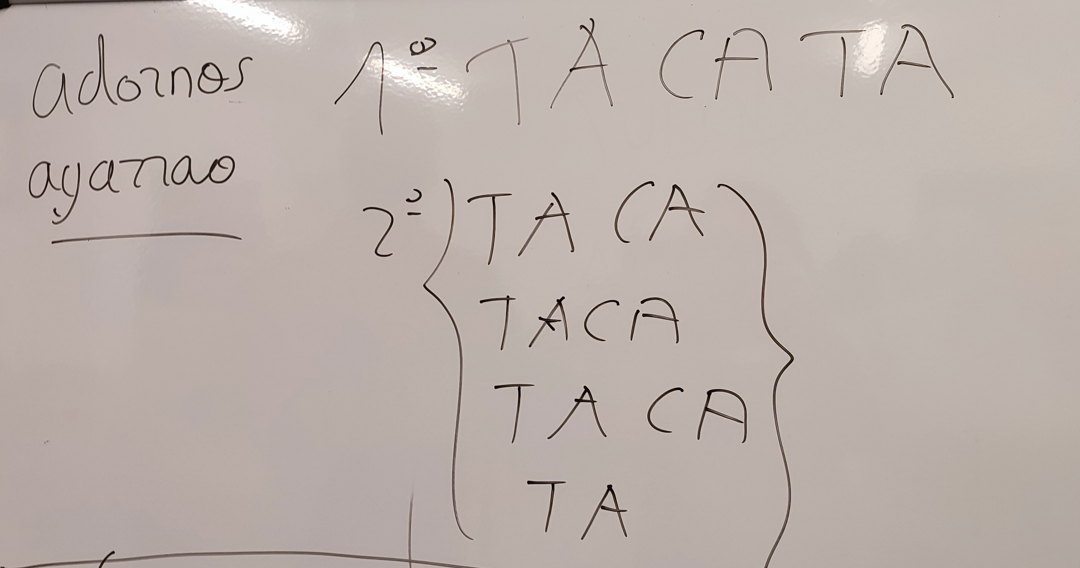 adornos
agarrao
1º TA CA TA
2º { TA CA }
TACA
TA CA
TA